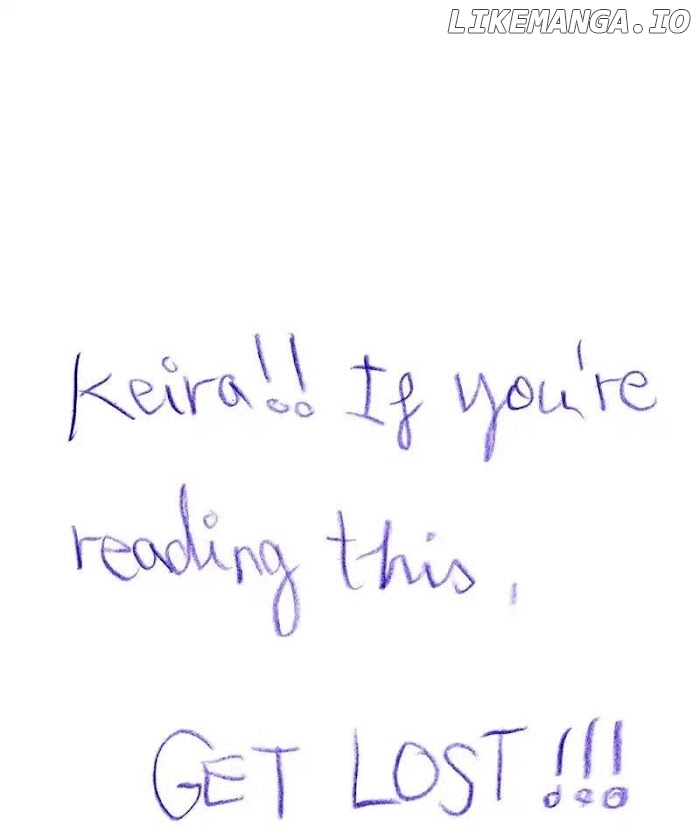 LIKEMANGA.IO
Keira!! If you're
reading this,
GET LOST!!!